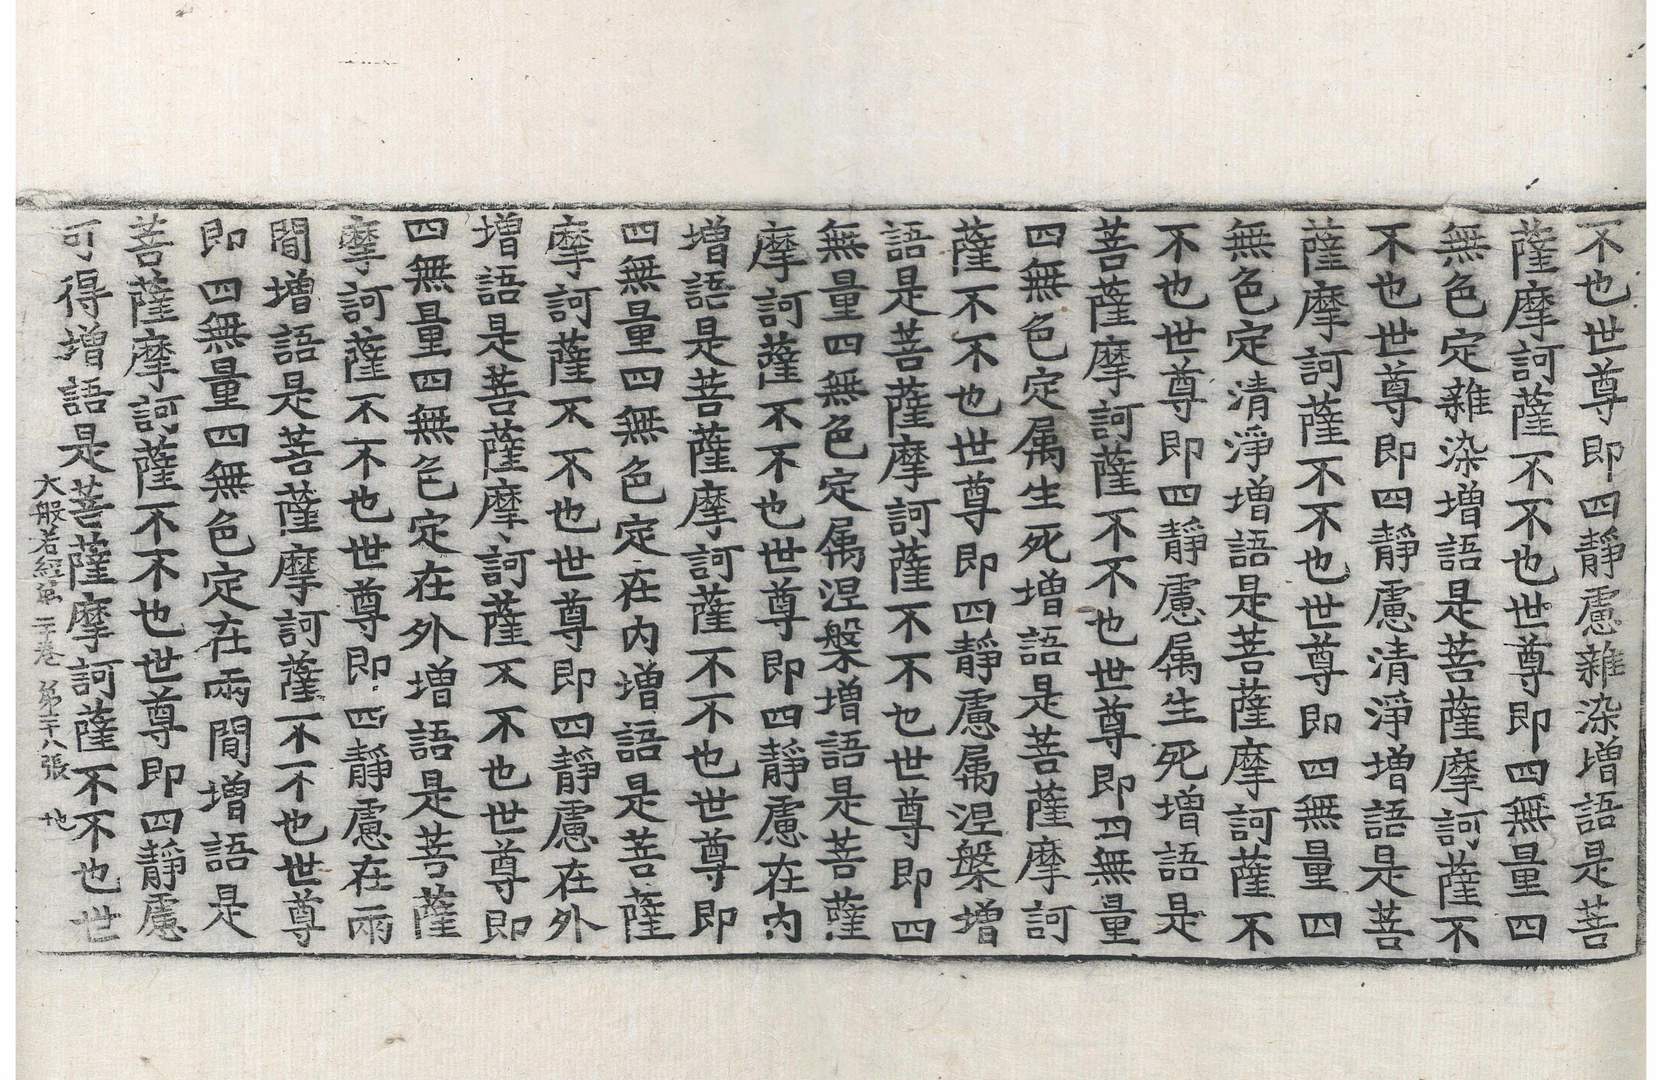 不也世尊即四靜慮雜染增語是菩
薩摩訶薩不不也世尊即四無量四
無色定雜染增語是菩薩摩訶薩不
不也世尊即四靜慮清淨增語是菩
薩摩訶薩不不也世尊即四無量四
無色定清淨增語是菩薩摩訶薩不
不也世尊即四靜慮属生死增語是
菩薩摩訶薩不不也世尊即四無量
四無色定属生死增語是菩薩摩訶
薩不不也世尊即四靜慮属涅槃增
語是菩薩摩訶薩不不也世尊即四
無量四無色定属涅槃增語是菩薩
摩訶薩不不也世尊即四靜慮在内
增語是菩薩摩訶薩不不也世尊即
四無量四無色定在内增語是菩薩
摩訶薩不不也世尊即四靜慮在外
增語是菩薩摩訶薩不不也世尊即
四無量四無色定在外增語是菩薩
摩訶薩不不也世尊即四靜慮在兩
間增語是菩薩摩訶薩不不也世尊
即四無量四無色定在兩間增語是
菩薩摩訶薩不不也世尊即四靜慮
可得增語是菩薩摩訶薩不不也世
大般若經第二十卷 第二十八張 地